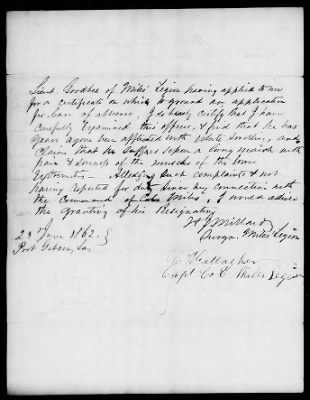 Lieut. Goodbee of Miles' Legion having applied to me
for a certificate on which to ground an application
for leave of absence, I do hereby certify that I have
Carefully Examined this officer, & find that he has
years agone been afflicted with White Swelling, and
Claims that he suffers upon a long march with
pain & soreness of the muscles of the lower
Extremities — Alledging such complaints & not
having reported for duty since my Connection with
the Command of Col. Miles, I would advise
the Granting of his Resignation
H J Millard
Surgn. Miles Legion
23d June 1862
Port Hudson, La,
J Gallagher
Capt Co C Miles Legion